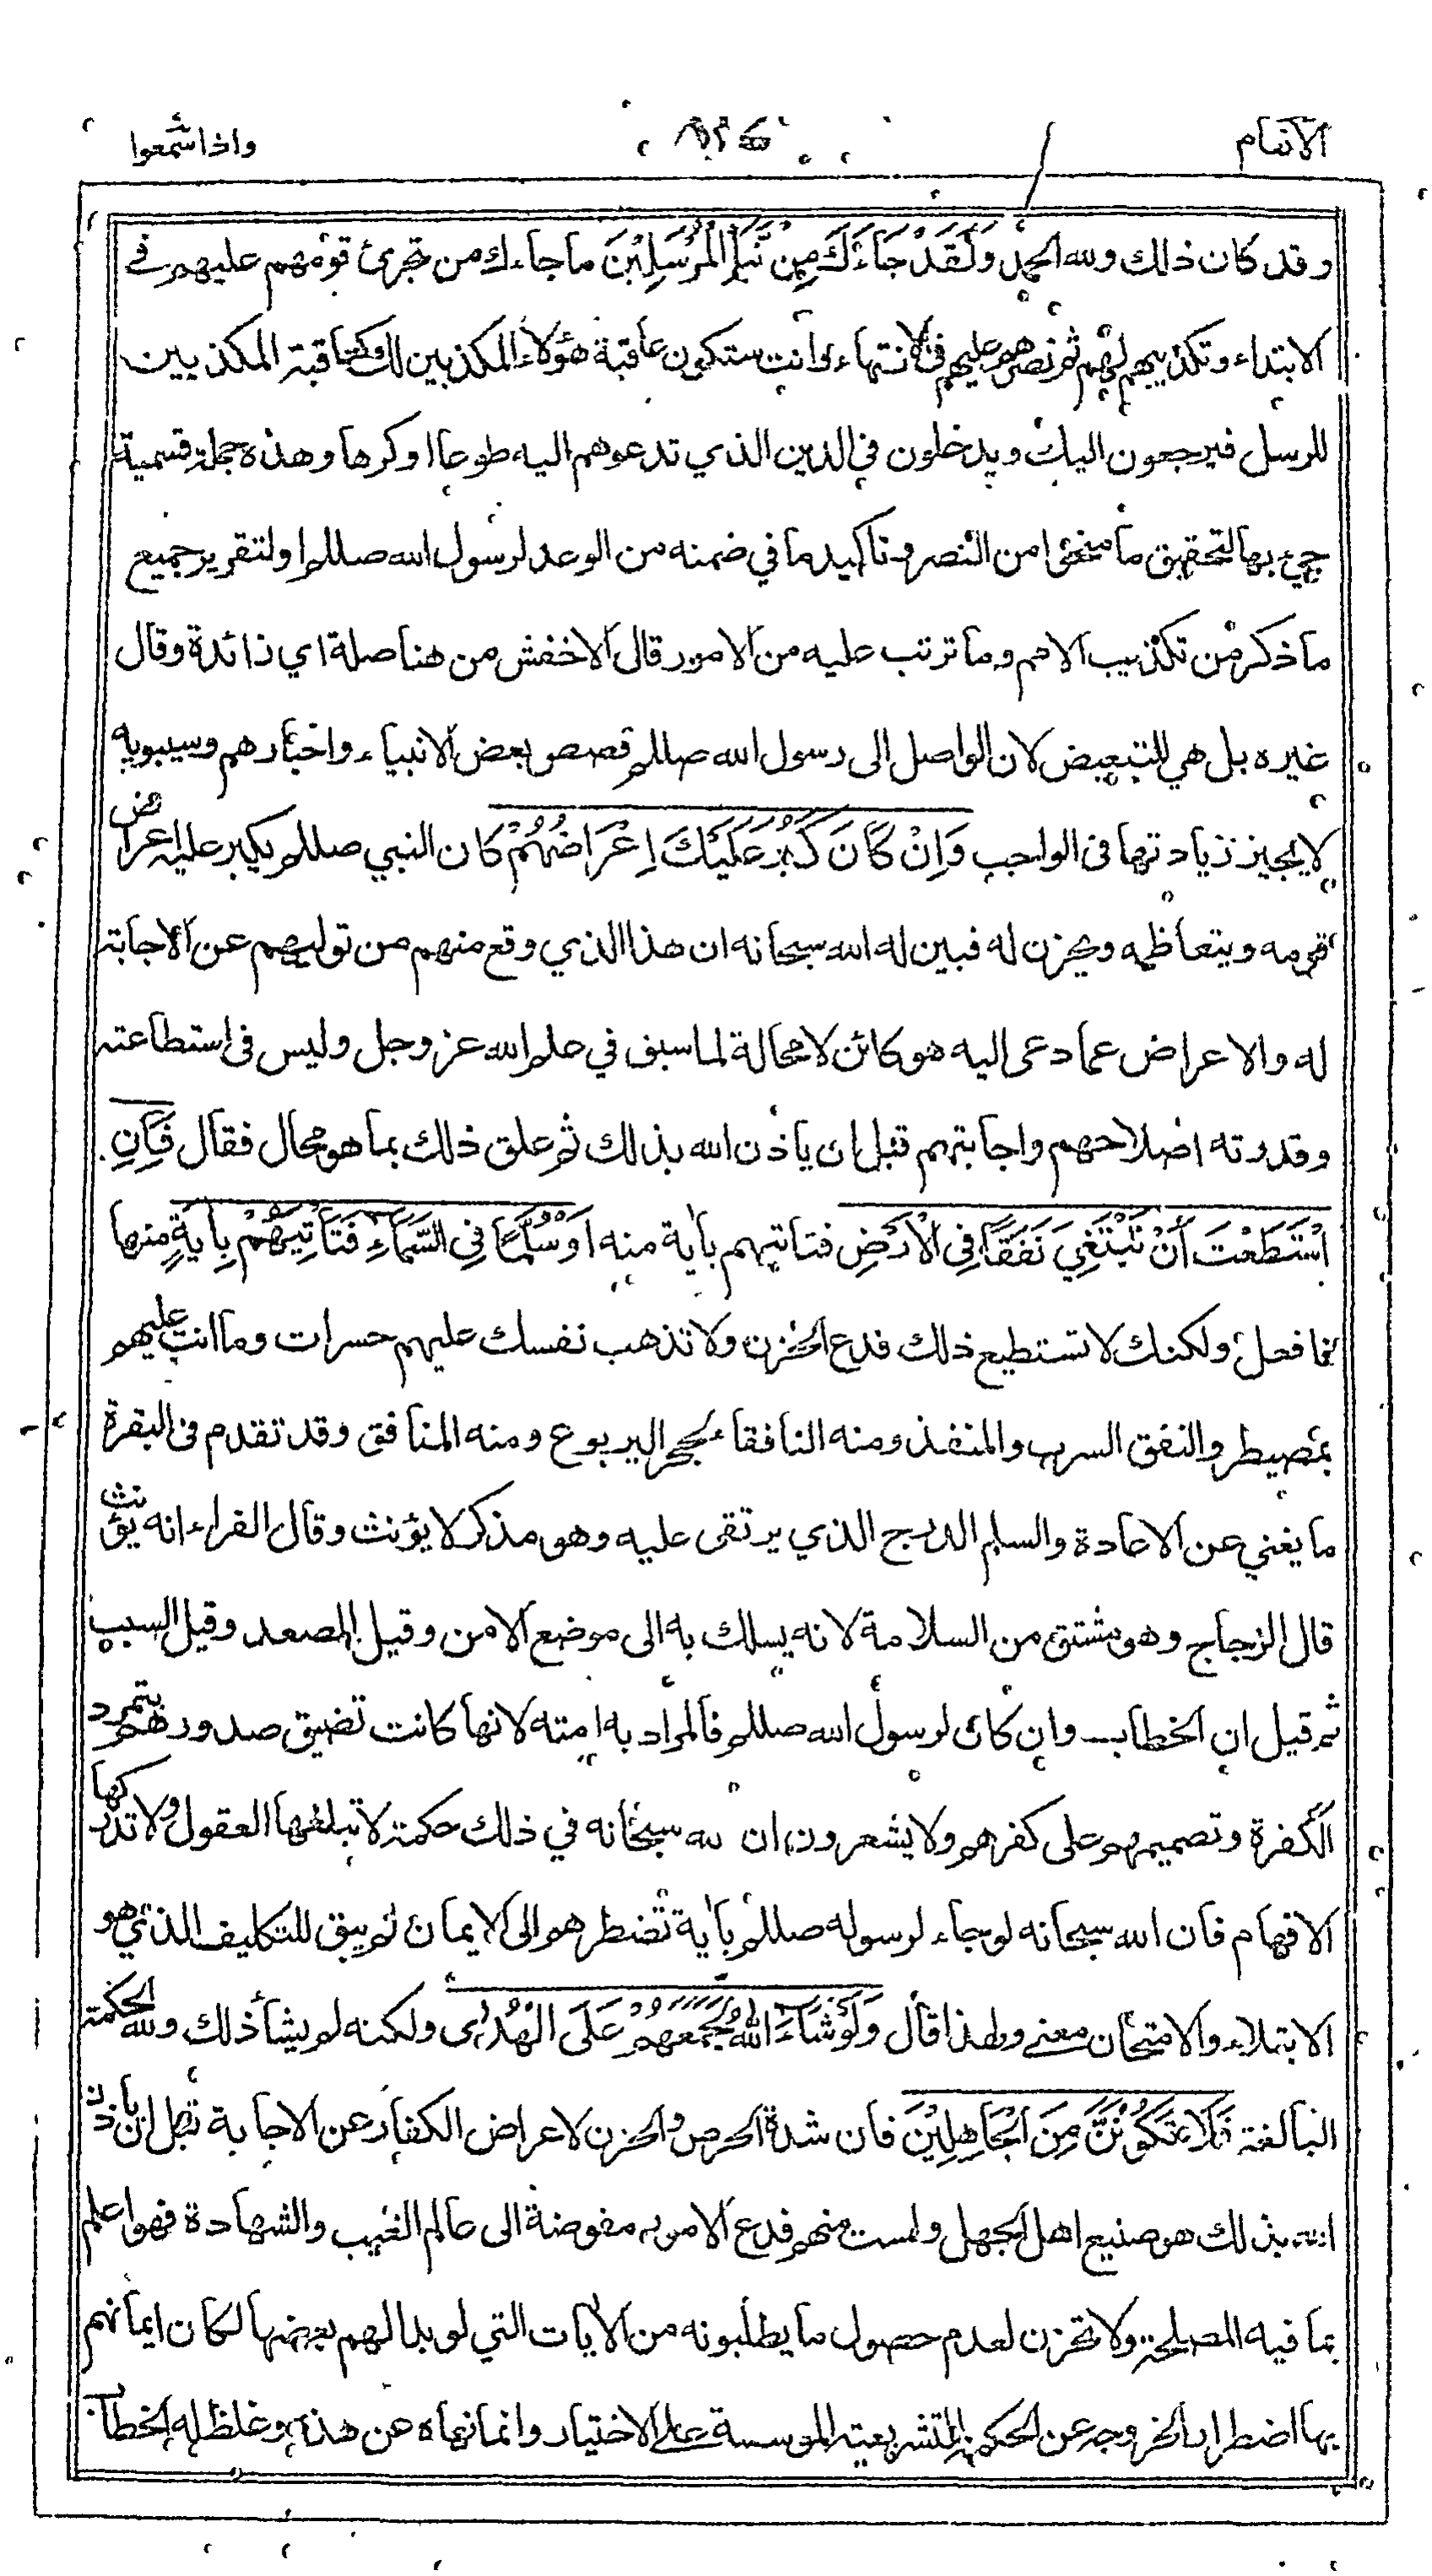 الانعام
واذا سمعوا
وقد كان ذلك ولله الحمد وَلَقَدْ جَاءَكَ مِنْ نَّبَإِ الْمُرْسَلِيْنَ ما جاءك من تجرئ قومهم عليهم في
الابتداء وتكذيبهم لهم ثم نصرهم عليهم في الانتهاء وانت ستكون عاقبة هؤلاء المكذبين لك وكعاقبة المكذبين
للرسل فيرجعون اليك ويدخلون في الدين الذي تدعوهم اليه طوعا او كرها وهذه جملة قسمية
جيء بها لتحقيق ما منحوا من النصر وتاكيد ما في ضمنه من الوعد لرسول الله صللم او لتقرير جميع
ما ذكر من تكذيب الامم وما ترتب عليه من الامور قال الاخفش من هنا صلة اي زائدة وقال
غيره بل هي للتبعيض لان الواصل الى رسول الله صللم قصص بعض الانبياء واخبارهم وسيبويه
لا يجيز زيادتها في الواجب وَاِنْ كَانَ كَبُرَ عَلَيْكَ اِعْرَاضُهُمْ كان النبي صللم يكبر عليه اعراض
قومه ويتعاظمه ويحزن له فبين له الله سبحانه ان هذا الذي وقع منهم من توليهم عن الاجابة
له والاعراض عما دعى اليه هو كائن لا محالة لما سبق في علم الله عز وجل وليس في استطاعته
وقدرته اصلاحهم واجابتهم قبل ان ياذن الله بذلك ثم علق ذلك بما هو محال فقال فَاِنِ
اسْتَطَعْتَ أَنْ تَبْتَغِيَ نَفَقًا فِي الْاَرْضِ فتاتيهم باٰية منه اَوْ سُلَّمًا فِي السَّمَاءِ فَتَأْتِيَهُمْ بِاٰيَةٍ منها
فافعل ولكنك لا تستطيع ذلك فدع الحزن ولا تذهب نفسك عليهم حسرات وما انت عليهم
بمصيطر والنفق السرب والمنفذ ومنه النافقاء لجحر اليربوع ومنه المنافق وقد تقدم في البقرة
ما يغني عن الاعادة والسلم الدرج الذي يرتقى عليه وهو مذكر لا يؤنث وقال الفراء انه يؤنث
قال الزجاج وهو مشتق من السلامة لانه يسلك به الى موضع الامن وقيل المصعد وقيل السبب
ثم قيل ان الخطاب وان كان لرسول الله صللم فالمراد به امته لانها كانت تضيق صدورهم بتمرد
الكفرة وتصميمهم على كفرهم ولا يشعرون ان لله سبحانه في ذلك حكمة لا تبلغها العقول ولا تدركها
الافهام فان الله سبحانه لو جاء لرسوله صللم باٰية تضطرهم الى الايمان لم يبق للتكليف الذي هو
الابتلاء والامتحان معنى ولهذا قال وَلَوْ شَاءَ اللهُ لَجَمَعَهُمْ عَلَى الْهُدٰى ولكنه لم يشأ ذلك ولله الحكمة
البالغة فَلَا تَكُوْنَنَّ مِنَ الْجَاهِلِيْنَ فان شدة الحرص والحزن لاعراض الكفار عن الاجابة قبل ان ياذن
الله بذلك هو صنيع اهل الجهل ولست منهم فدع الامور مفوضة الى عالم الغيب والشهادة فهو اعلم
بما فيه المصلحة ولا تحزن لعدم حصول ما يطلبونه من الاٰيات التي لو بدا لهم بعضها لكان ايمانهم
بها اضطرارا لخروجه عن الحكمة التشريعية الموسسة على الاختيار وانما نهاه عن هذه وغلظ له الخطاب